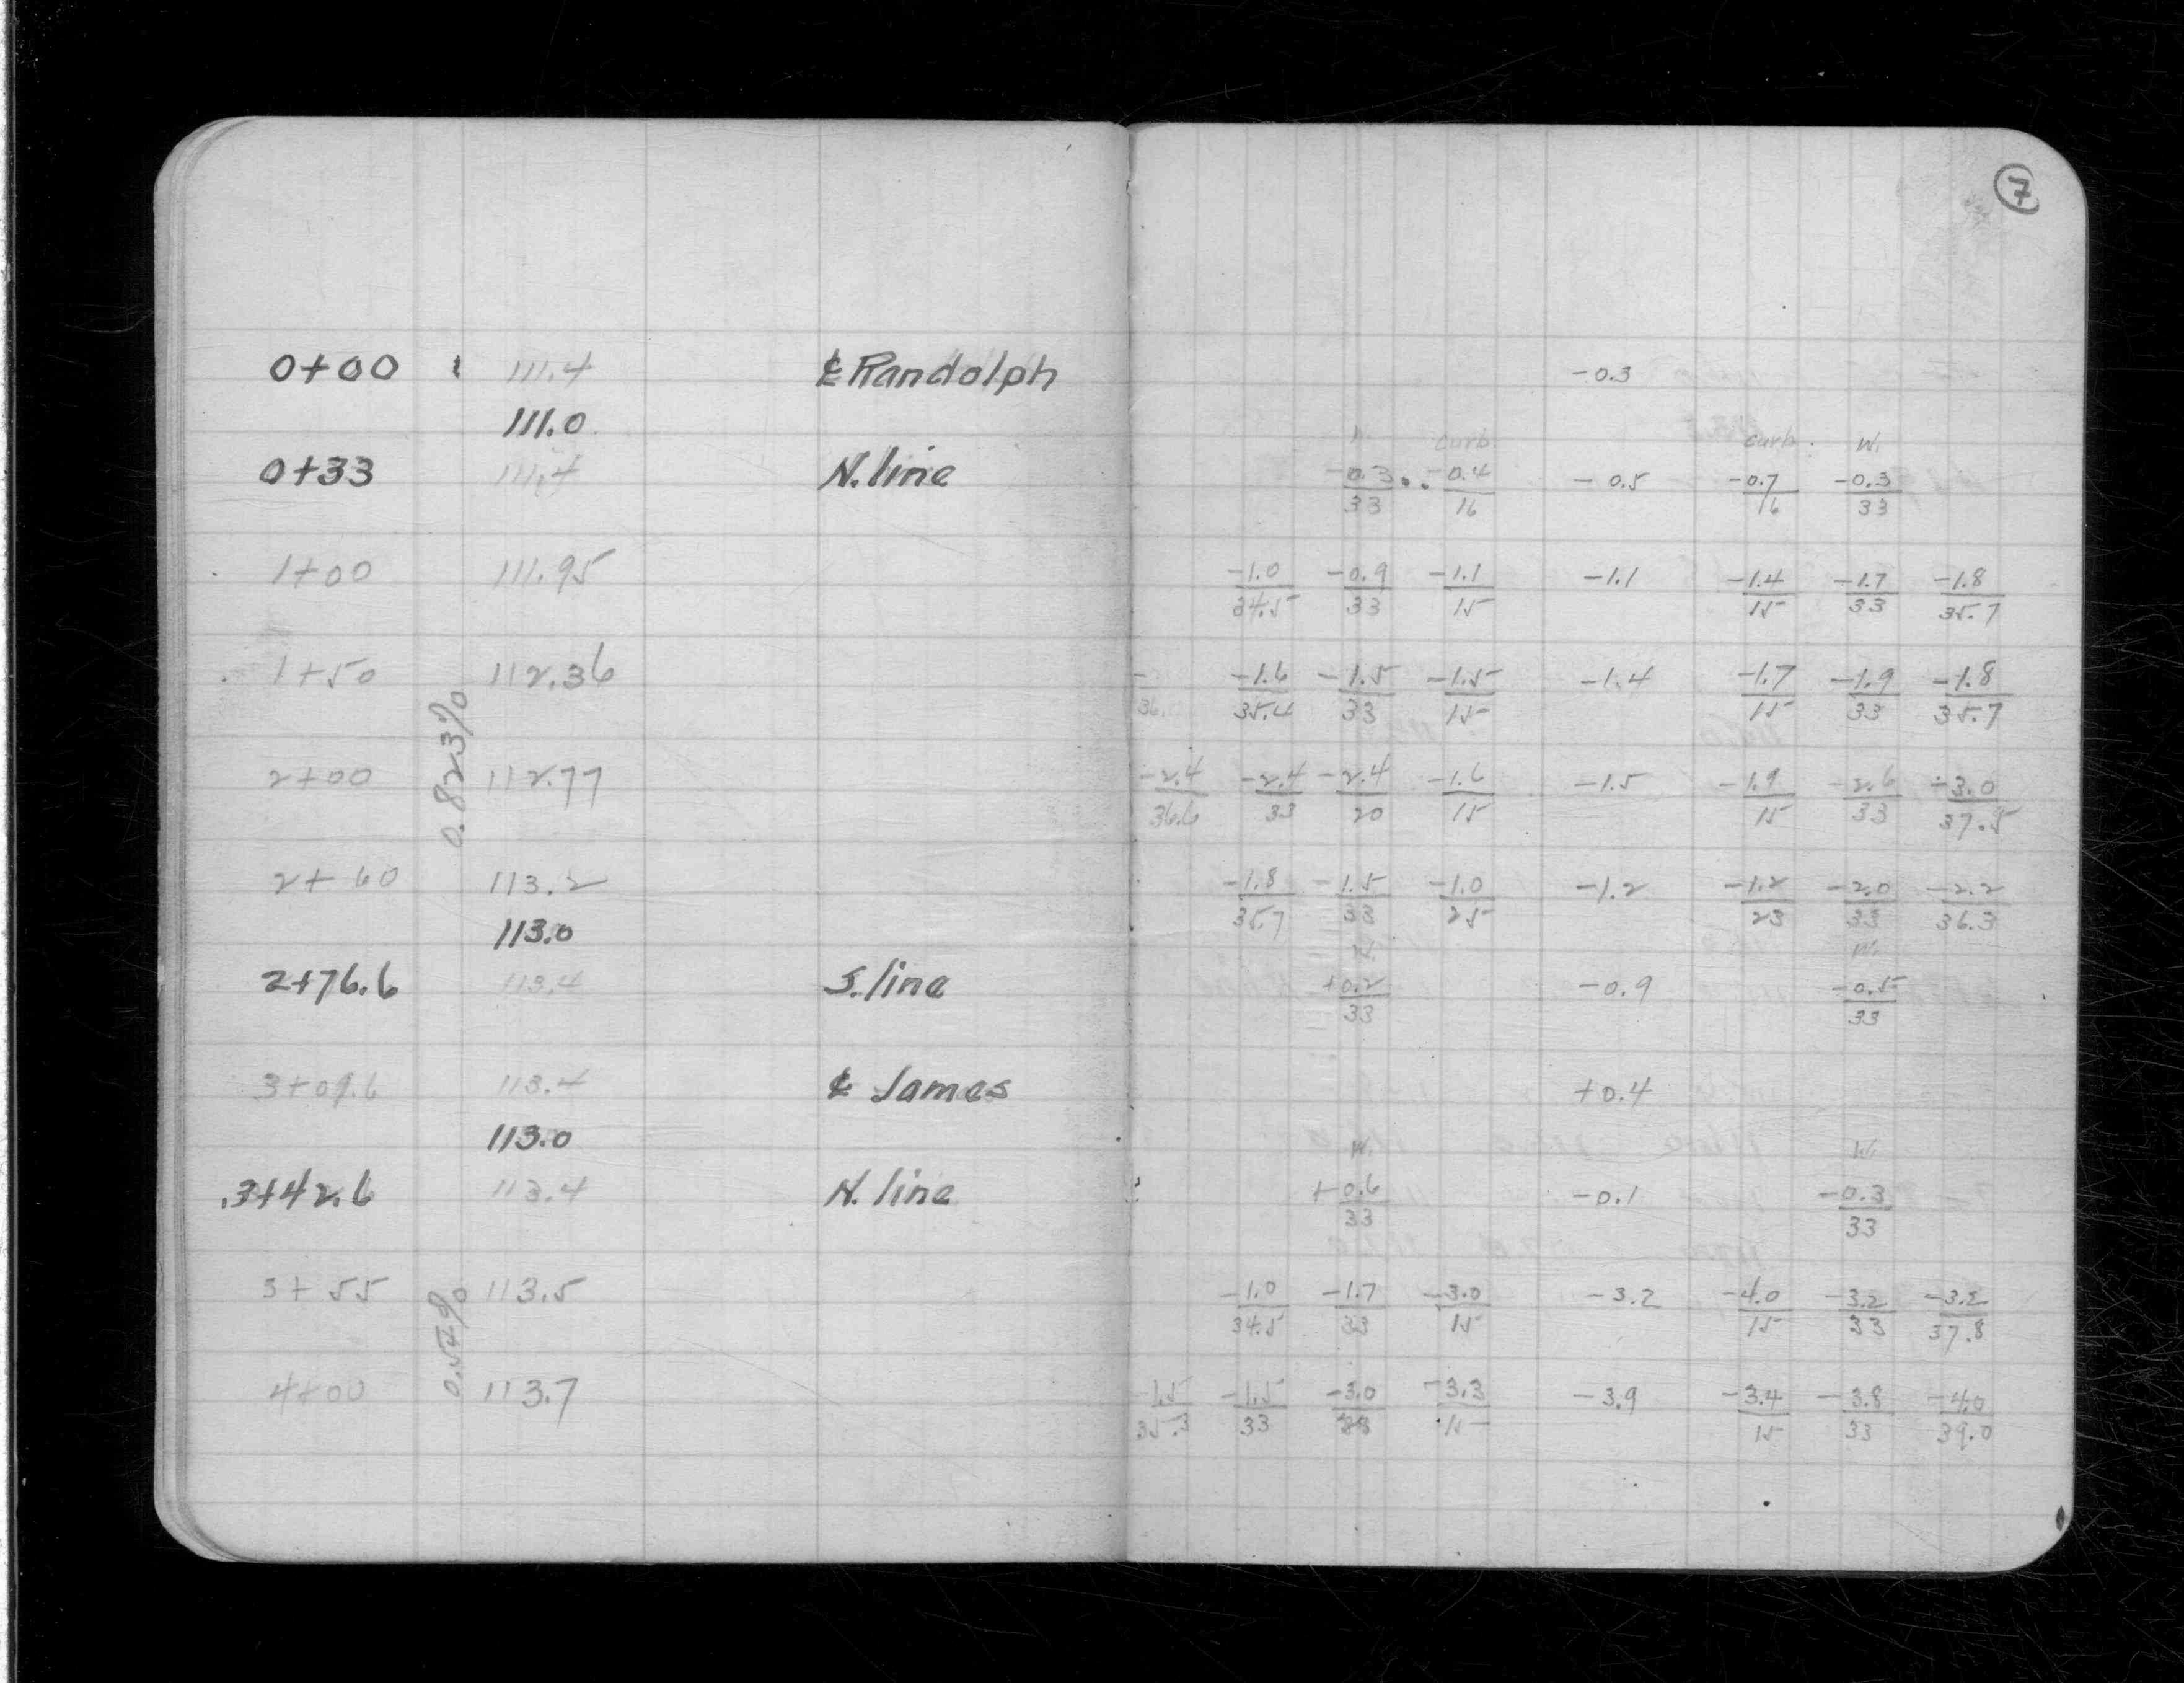 7
0+00 111.4 ⅊ Randolph -0.3
111.0
W. curb. curb. W.
0+33 111.4 N. line -0.3/33 -0.4/16 -0.5 -0.7/16 -0.3/33
1+00 111.95 -1.0/34.5 -0.9/33 -1.1/15 -1.1 -1.4/15 -1.7/33 -1.8/35.7
1+50 112.36 -1.6/35.4 -1.5/33 -1.5/15 -1.4 -1.7/15 -1.9/33 -1.8/35.7
0.823%
2+00 112.77 -2.4/36.6 -2.4/33 -2.4/20 -1.6/15 -1.5 -1.9/15 -2.6/33 -3.0/37.5
2+60 113.2 -1.8/35.7 -1.5/33 -1.0/25 -1.2 -1.2/23 -2.0/33 -2.2/36.3
113.0
W. W.
2+76.6 113.4 S. line +0.2/33 -0.9 -0.5/33
3+09.6 113.4 ⅊ James +0.4
113.0
W. W.
3+42.6 113.4 N. line +0.6/33 -0.1 -0.3/33
3+55 113.5 -1.0/34.5 -1.7/33 -3.0/15 -3.2 -4.0/15 -3.2/33 -3.2/37.8
0.54%
4+00 113.7 -1.5/35.3 -1.5/33 -3.0/28 -3.3/15 -3.9 -3.4/15 -3.8/33 -4.0/39.0